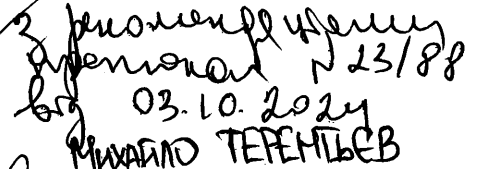 З рекомендаціями
протокол N 23/88
від 03.10.2024
МИХАЙЛО ТЕРЕНТЬЄВ